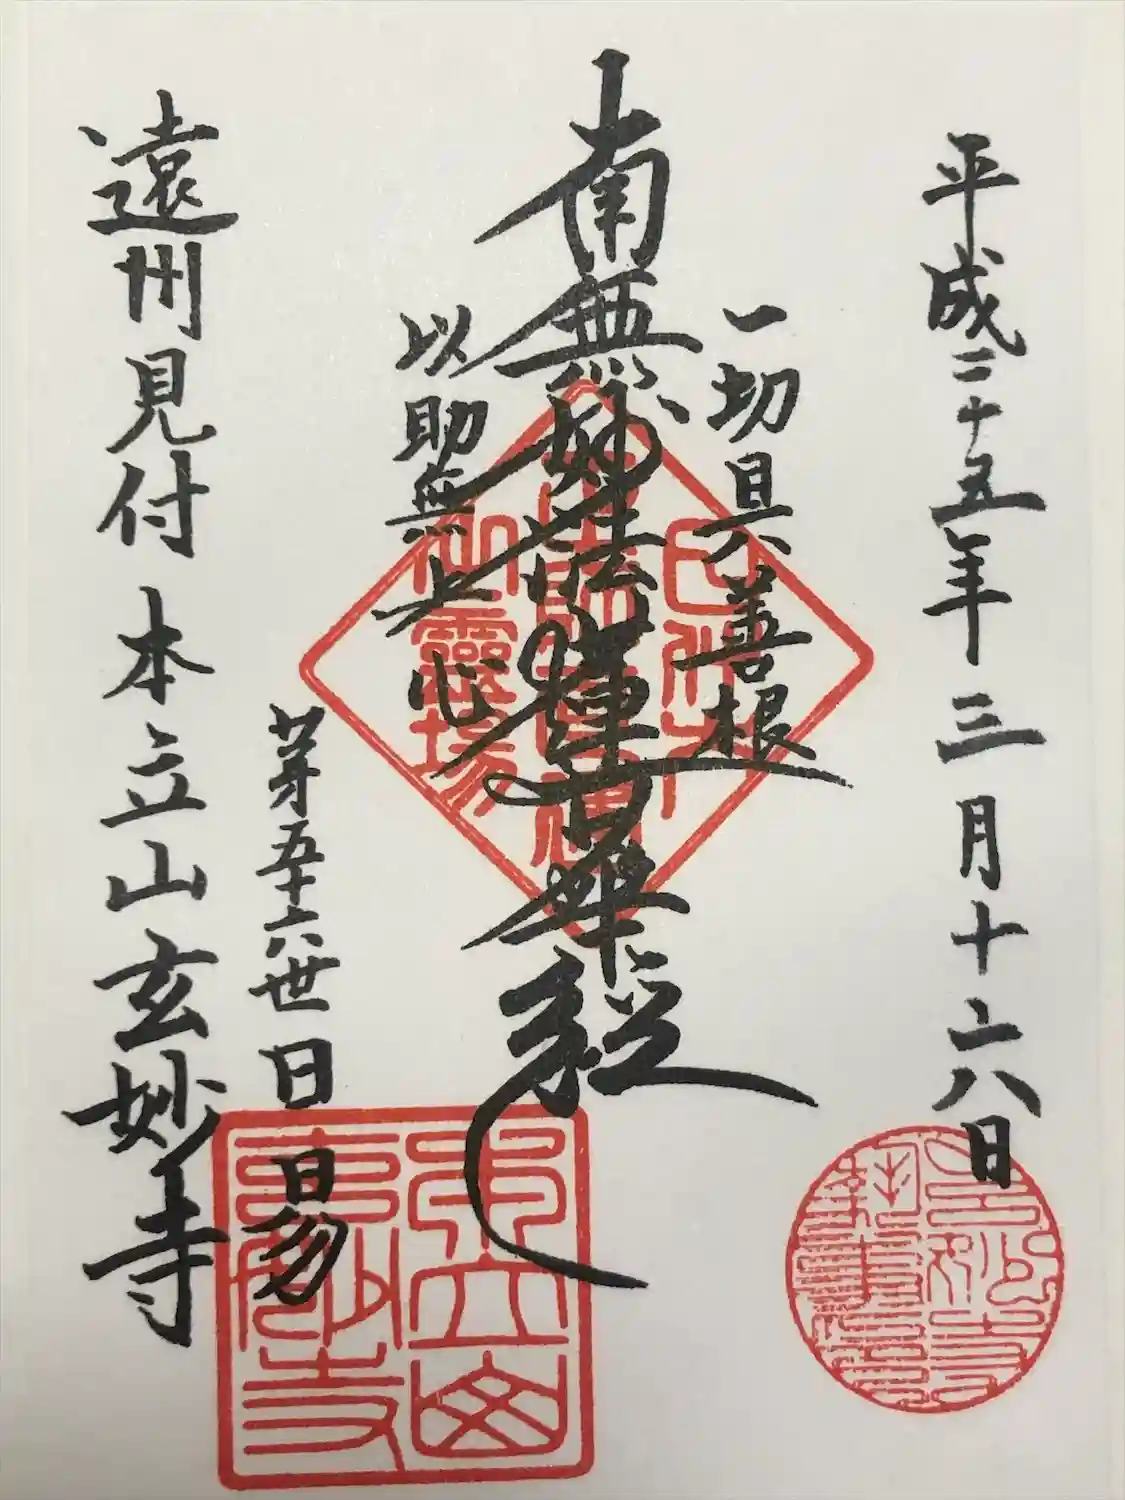 平成二十五年三月十六日
一切具善根
南無妙法蓮華経
以助無上心
第五十六世 日昜
遠州見付 本立山玄妙寺
本立山玄妙寺
玄妙寺